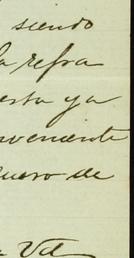 siendo
la refra
esta ya
nveniente
de
Vd